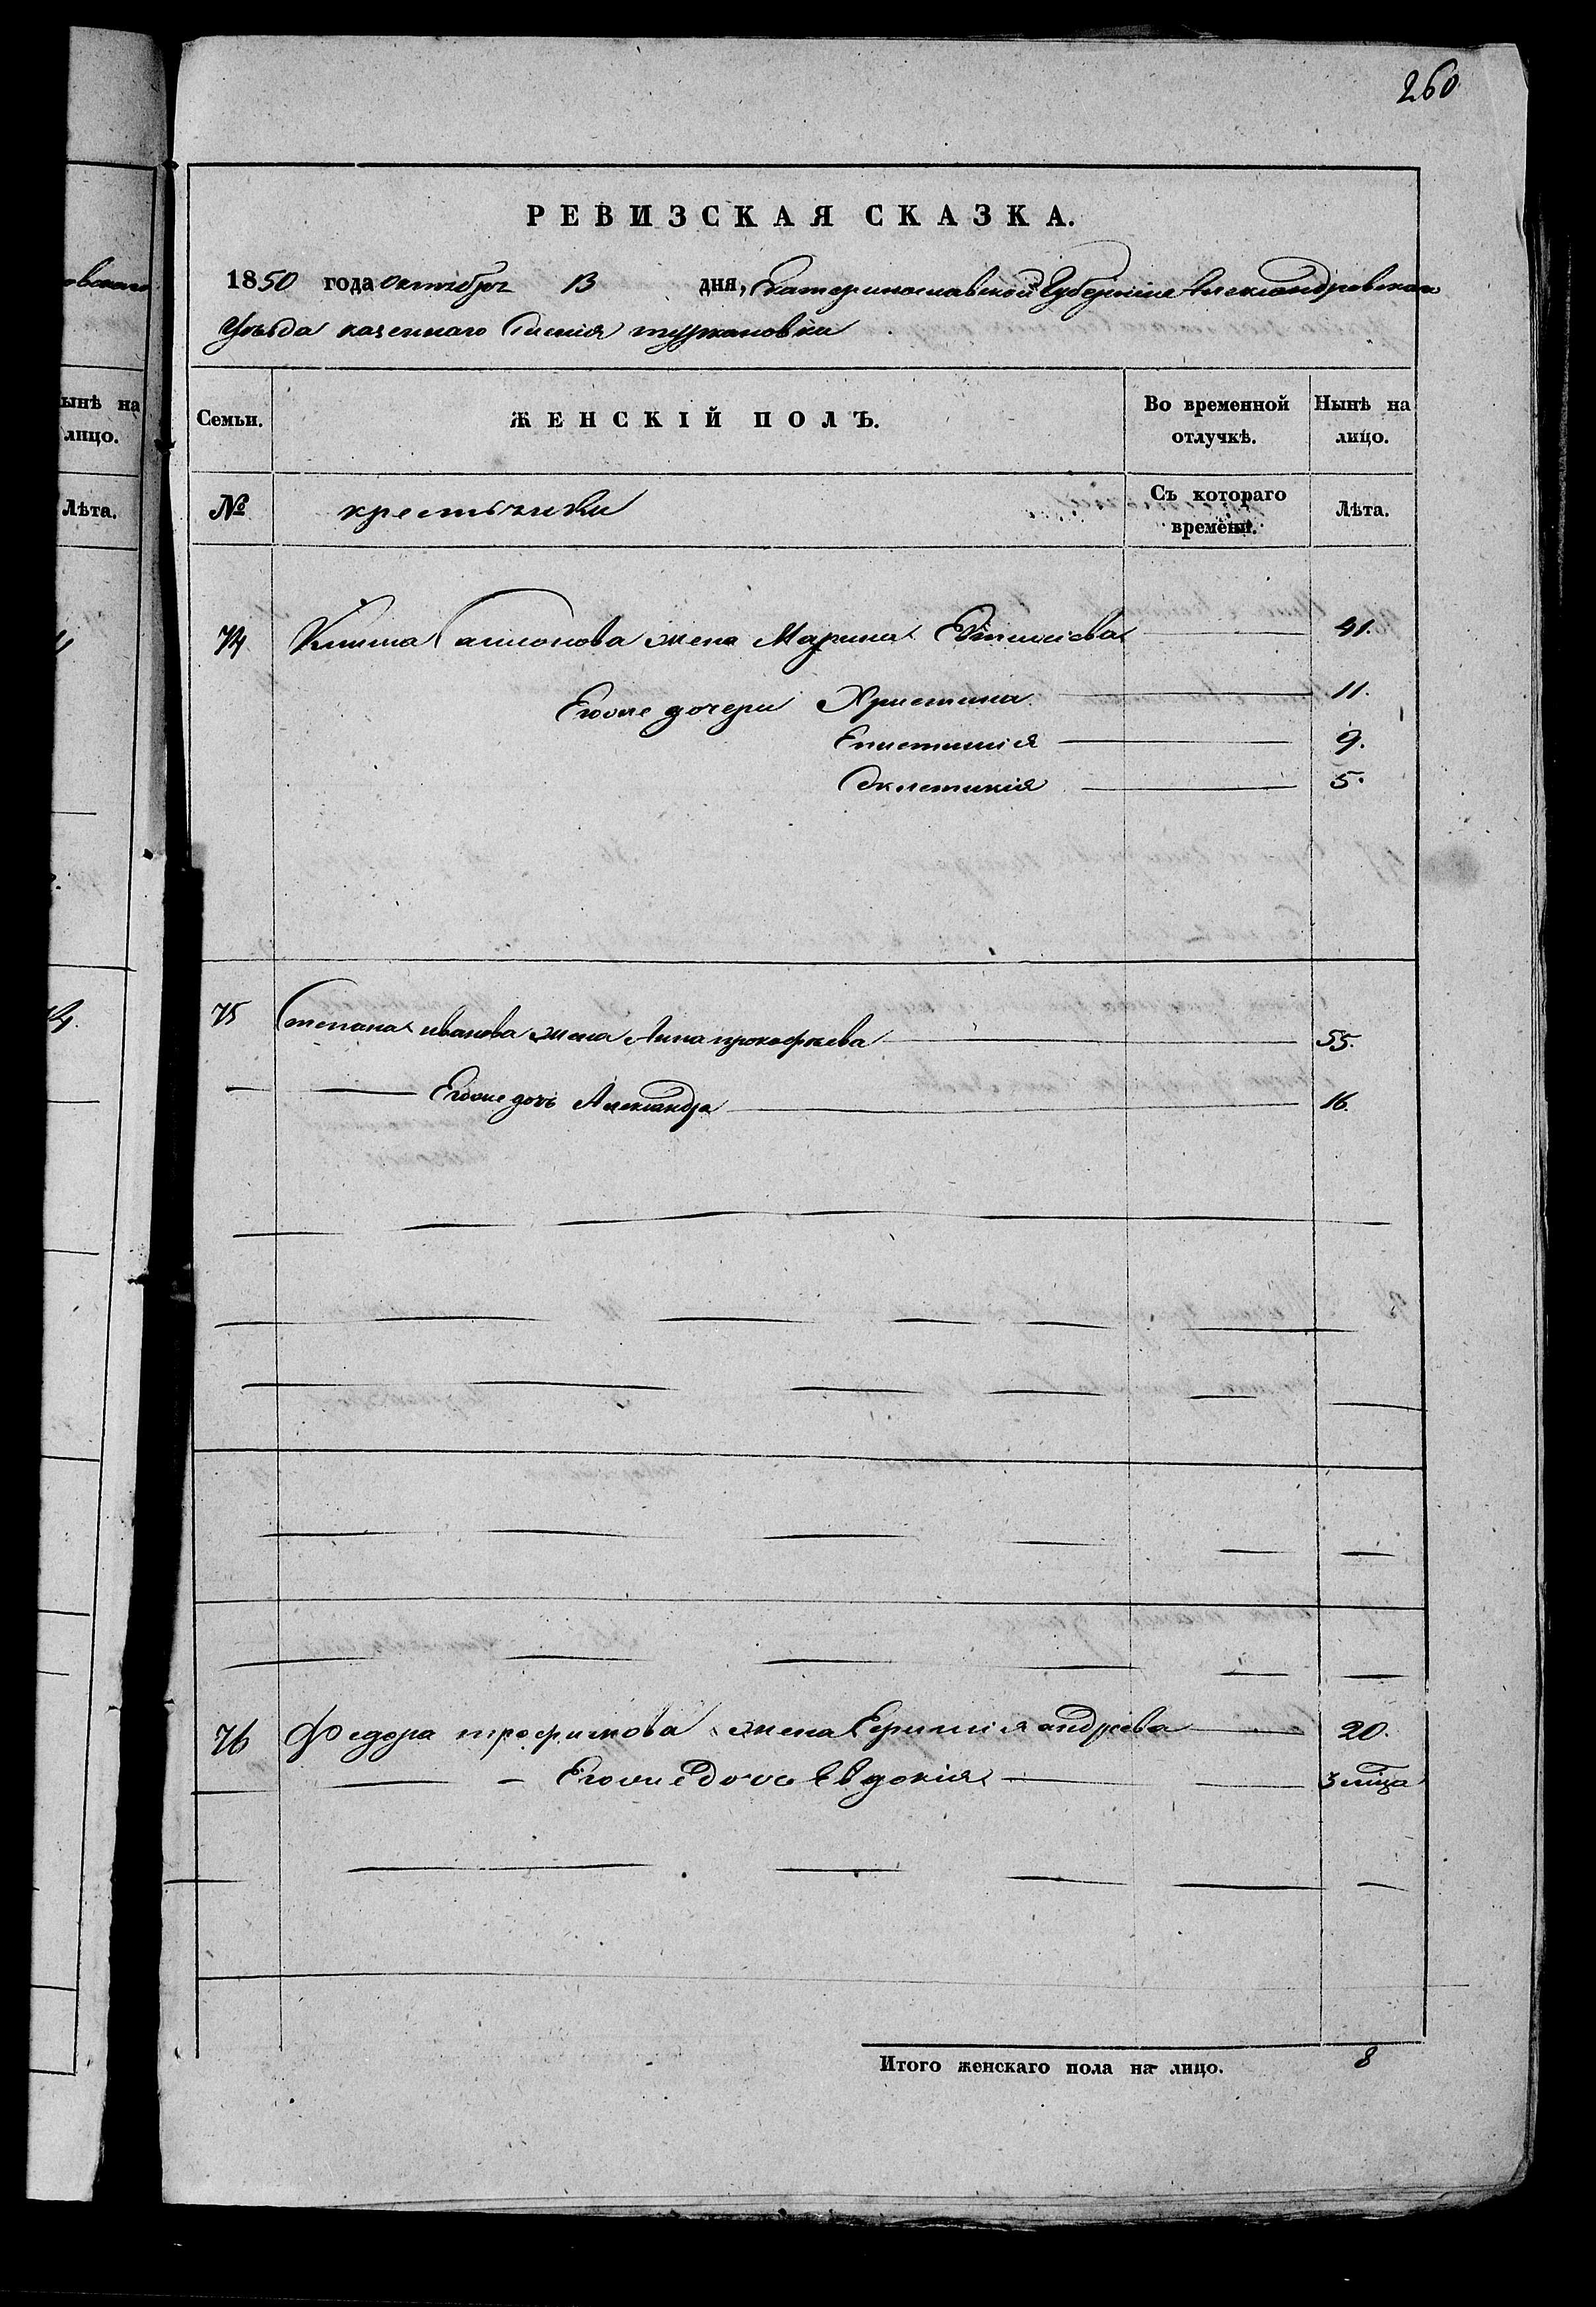 260
РЕВИЗСКАЯ СКАЗКА.
1850 года октября 13 дня, Екатеринославской Губернии Александровскаго
Уезда казеннаго Селения туркановки
Семьи. ЖЕНСКІЙ ПОЛЪ. Во временной отлучкѣ. Нынѣ на лицо.
№ крестьянки Съ котораго времени. Лѣта.
74 Клима жена Марина 41.
Его дочери Христина 11.
Епистимия 9.
5.
75 Степана иванова жена Анна прокофьева 55.
Его дочь Александра 16.
76 Федора трофимова жена андреева 20.
Его дочь Евдокия 3 мца
Итого женскаго пола на лицо. 8
ынѣ на
лицо.
Лѣта.